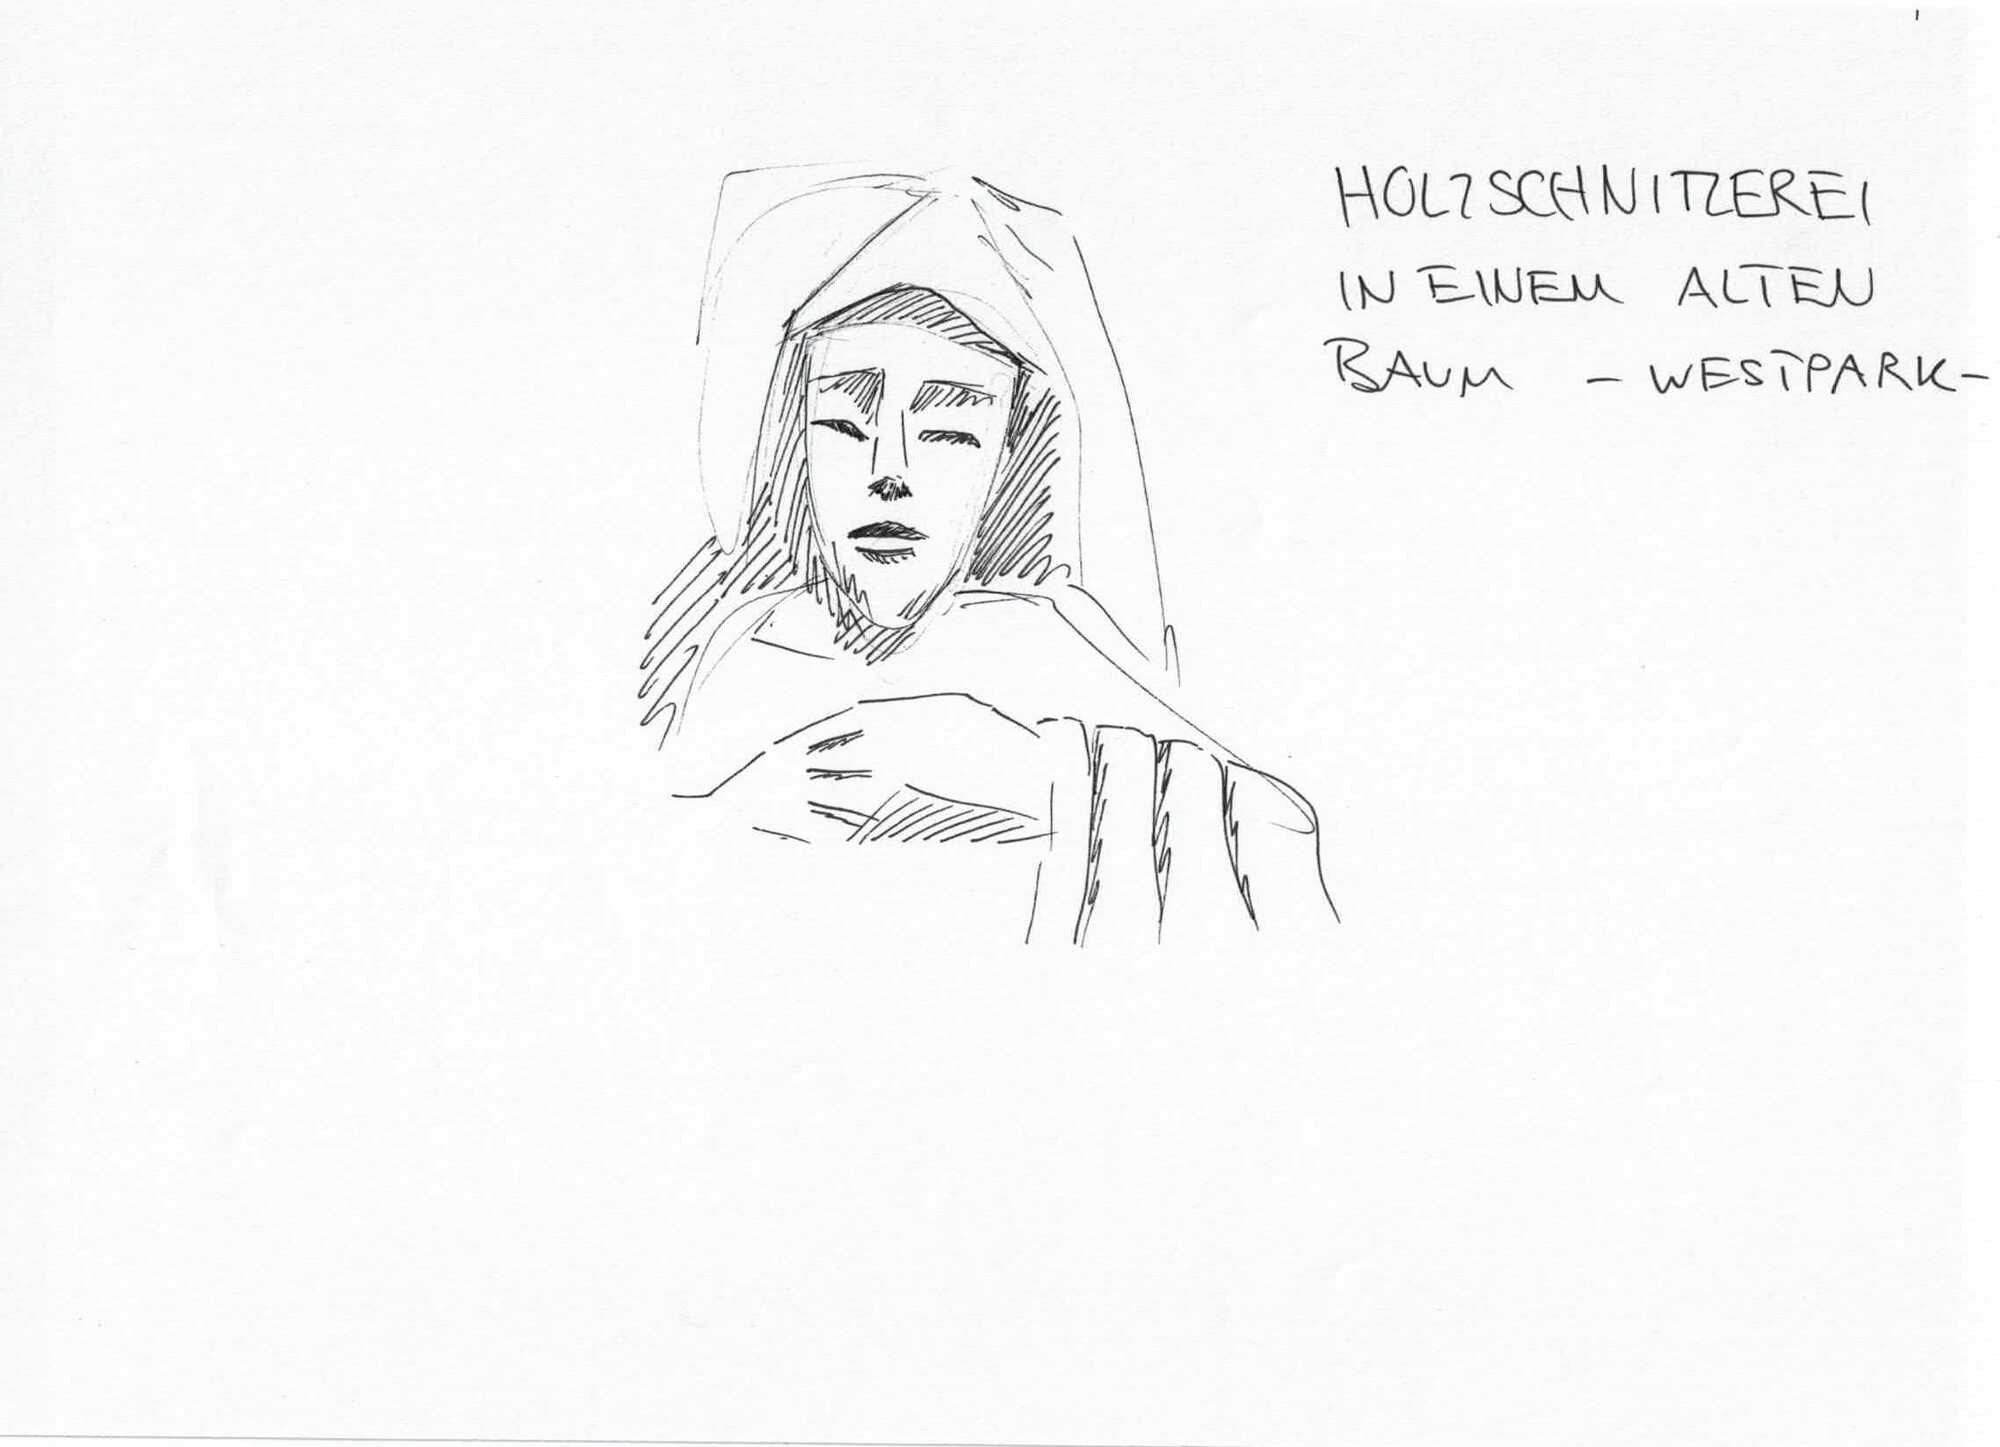 HOLZSCHNITZEREI
IN EINEM ALTEN
BAUM - WESTPARK-